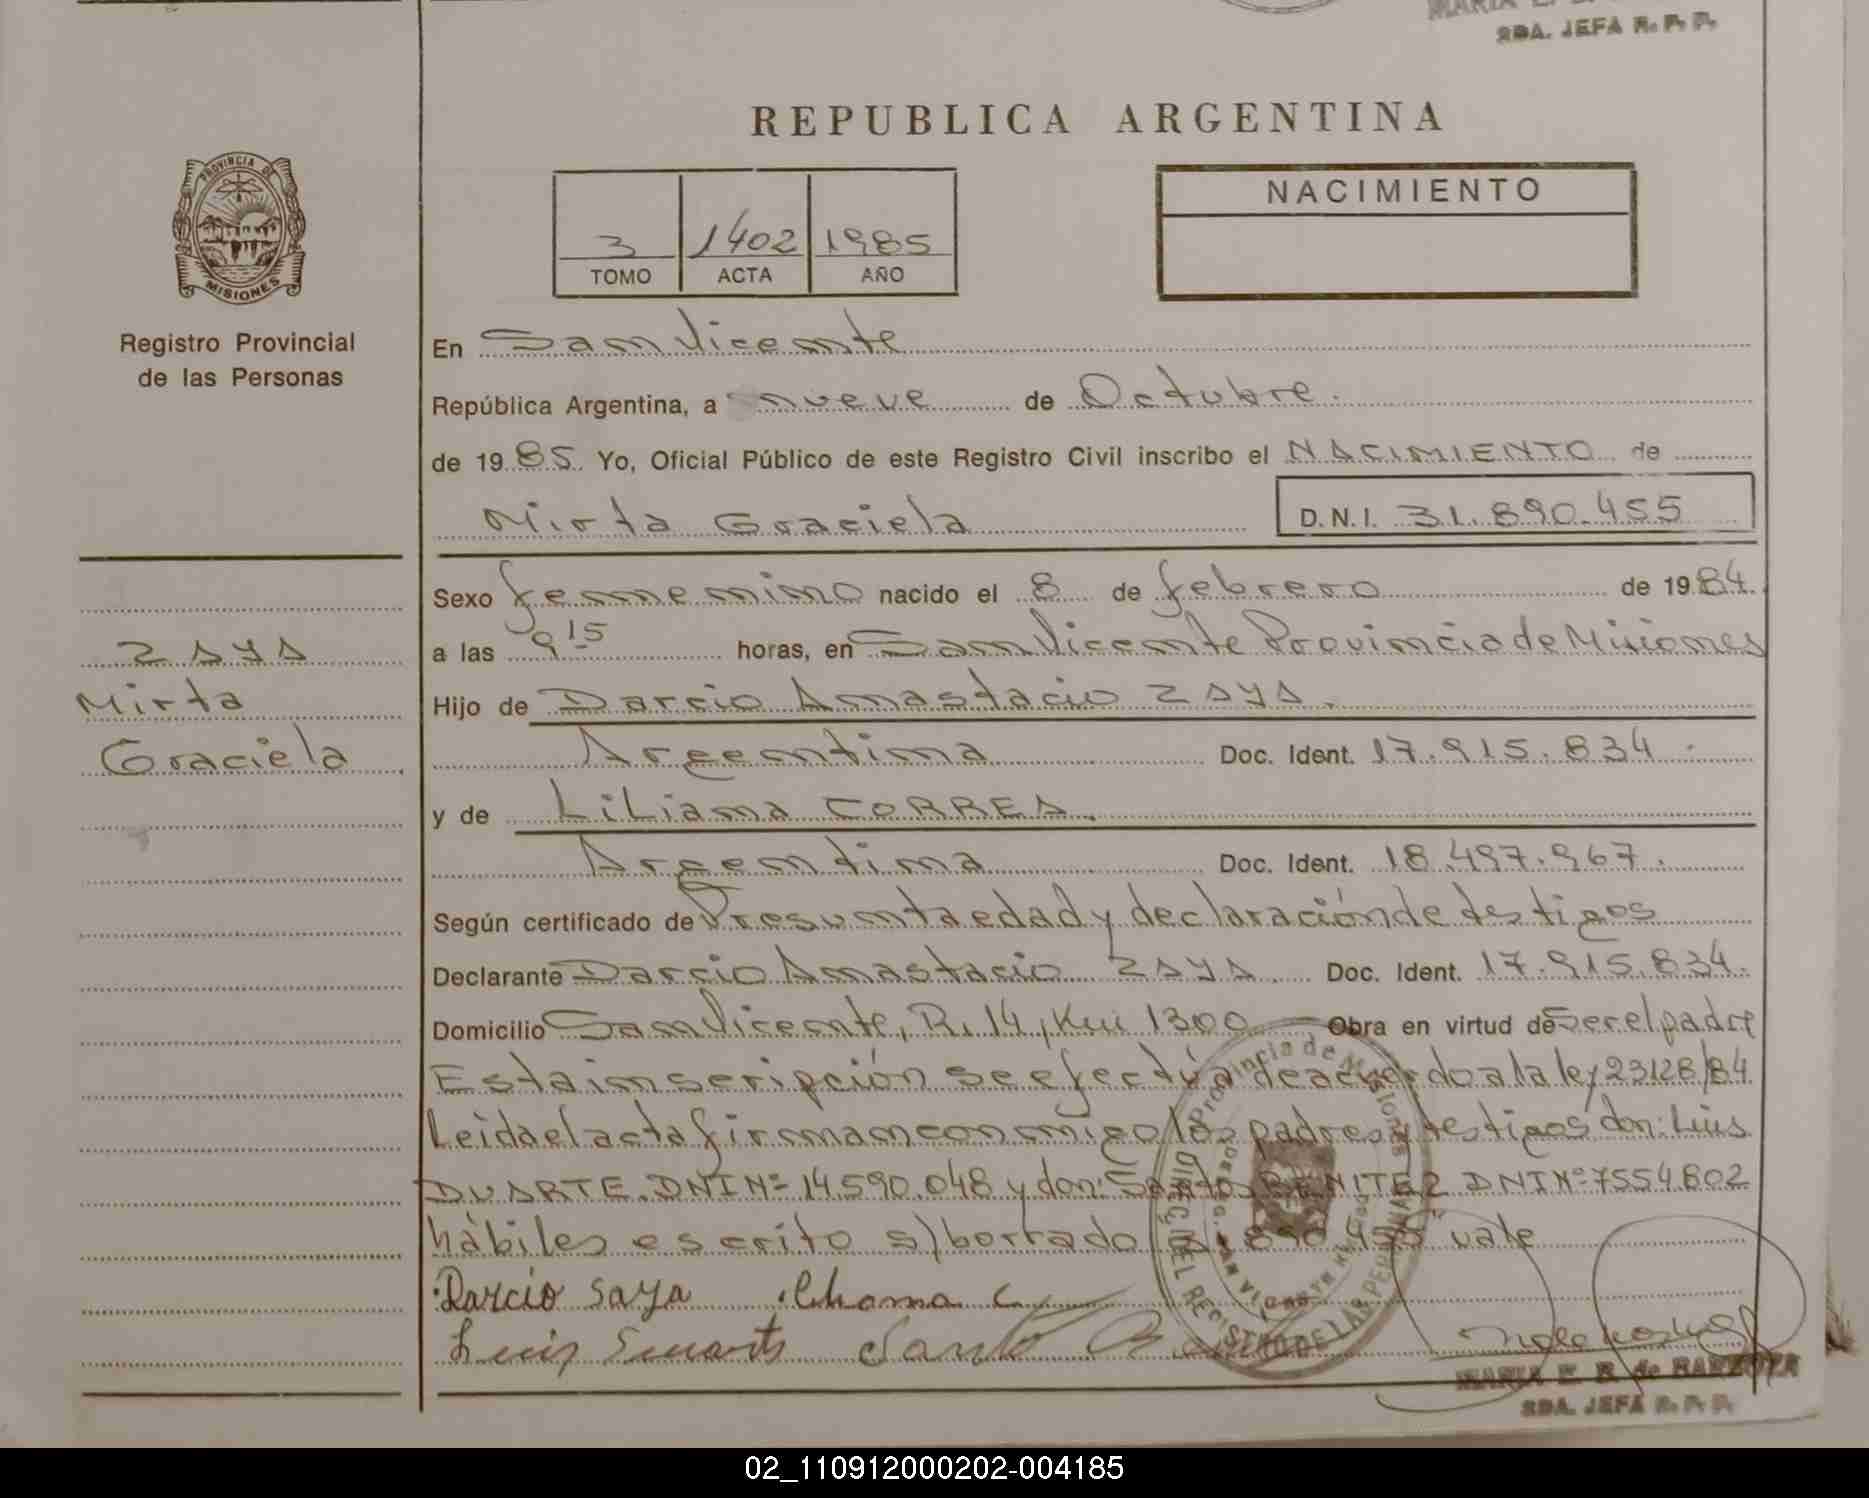 SDA. JEFA R. P. P.
REPUBLICA ARGENTINA
PROVINCIA DE
MISIONES
Registro Provincial
de las Personas
3 1402 1985
TOMO ACTA AÑO
NACIMIENTO
En San Vicente
República Argentina, a nueve de Octubre.
de 1985. Yo, Oficial Público de este Registro Civil inscribo el NACIMIENTO de
Mirta Graciela D.N.I. 31.890.455
Sexo femenino nacido el 8 de febrero de 1984.
a las 9 15 horas, en San Vicente Provincia de Misiones
Hijo de Darcio Anastacio ZAYA.
Argentina Doc. Ident. 17.915.834.
y de Liliana CORREA.
Argentina Doc. Ident. 18.497.967.
Según certificado de Presunta edad y declaración de testigos
Declarante Darcio Anastacio ZAYA. Doc. Ident. 17.915.834.
Domicilio San Vicente, R. 14, Km 1300 Obra en virtud de Ser el padre
Esta inscripción se efectúa de acuerdo a la ley 23128/84
Leida el acta firman conmigo los padres y testigos don: Luis
DUARTE DNI Nº 14.590.048 y don: Santos BENITEZ DNI Nº 7554802
hàbiles escrito s/borrado 31.890.455 vale
Darcio Saya
Luis Duarte
MARIA E. B. de
SDA. JEFA R. P. P.
ZAYA
Mirta
Graciela
02_110912000202-004185